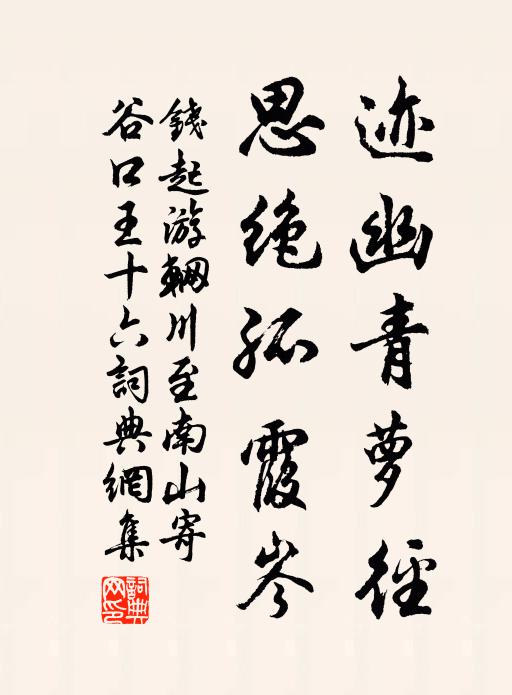 迹幽青萝径
思绝孤霞岑
錢起游輞川至南山寄
谷口王十六詞典網集
詞典
网印